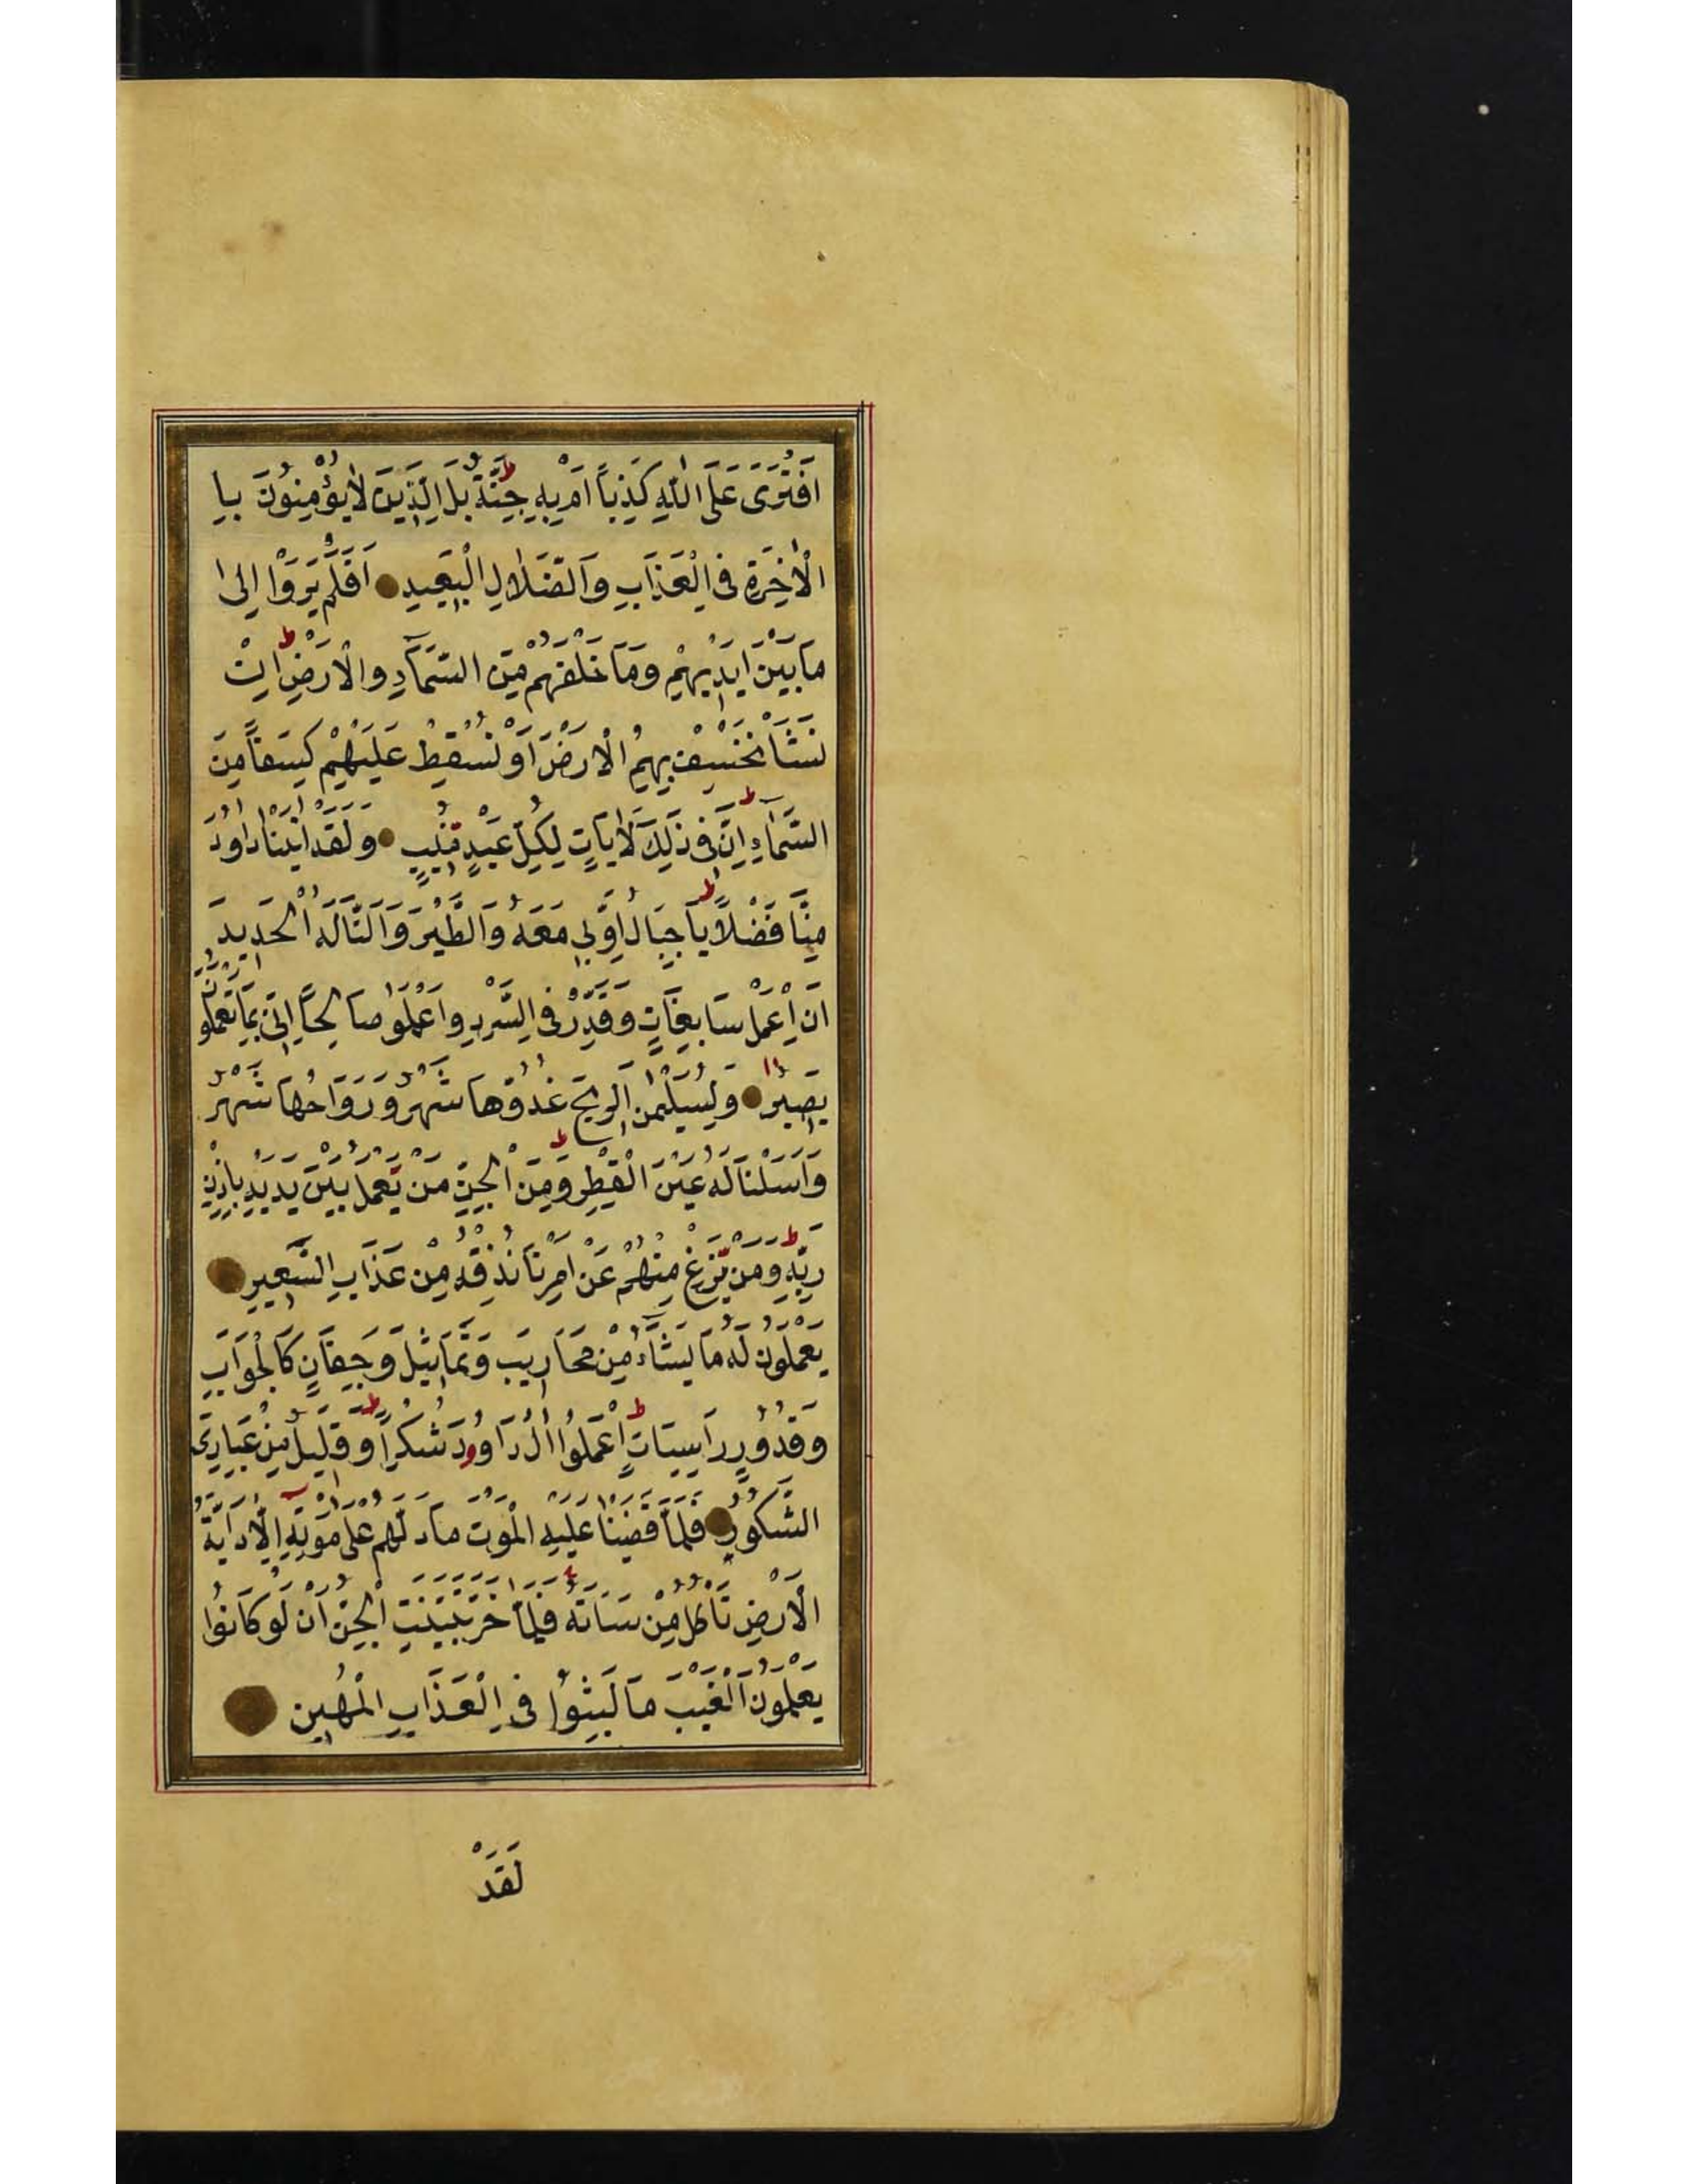 اَفْتَرَى عَلَى اللّٰهِ كَذِبًا اَمْ بِهِ جِنَّةٌ ط بَلِ الَّذِينَ لَا يُؤْمِنُونَ بِا
الْاٰخِرَةِ فِى الْعَذَابِ وَالضَّلَالِ الْبَعِيدِ اَفَلَمْ يَرَوْا اِلٰى
مَا بَيْنَ اَيْدِيهِمْ وَمَا خَلْفَهُمْ مِنَ السَّمَآءِ وَالْاَرْضِ ط اِنْ
نَشَأْ نَخْسِفْ بِهِمُ الْاَرْضَ اَوْ نُسْقِطْ عَلَيْهِمْ كِسَفًا مِنَ
السَّمَآءِ ط اِنَّ فِى ذٰلِكَ لَاٰيَاتٍ لِكُلِّ عَبْدٍ مُنِيبٍ وَلَقَدْ اٰتَيْنَا دَاوُدَ
مِنَّا فَضْلًا ط يَا جِبَالُ اَوِّبِى مَعَهُ وَالطَّيْرَ وَاَلَنَّا لَهُ الْحَدِيدَ
اَنِ اعْمَلْ سَابِغَاتٍ وَقَدِّرْ فِى السَّرْدِ وَاعْمَلُوا صَالِحًا اِنِّى بِمَا تَعْمَلُونَ
بَصِيرٌ وَلِسُلَيْمٰنَ الرِّيحَ غُدُوُّهَا شَهْرٌ وَرَوَاحُهَا شَهْرٌ
وَاَسَلْنَا لَهُ عَيْنَ الْقِطْرِ ط وَمِنَ الْجِنِّ مَنْ يَعْمَلُ بَيْنَ يَدَيْهِ بِاِذْنِ
رَبِّهِ ط وَمَنْ يَزِغْ مِنْهُمْ عَنْ اَمْرِنَا نُذِقْهُ مِنْ عَذَابِ السَّعِيرِ
يَعْمَلُونَ لَهُ مَا يَشَآءُ مِنْ مَحَارِيبَ وَتَمَاثِيلَ وَجِفَانٍ كَالْجَوَابِ
وَقُدُورٍ رَاسِيَاتٍ ط اِعْمَلُوا اٰلَ دَاوُودَ شُكْرًا ط وَقَلِيلٌ مِنْ عِبَادِىَ
الشَّكُورُ فَلَمَّا قَضَيْنَا عَلَيْهِ الْمَوْتَ مَا دَلَّهُمْ عَلٰى مَوْتِهِ اِلَّا دَآبَّةُ
الْاَرْضِ تَأْكُلُ مِنْسَاَتَهُ فَلَمَّا خَرَّ تَبَيَّنَتِ الْجِنُّ اَنْ لَوْ كَانُوا
يَعْلَمُونَ الْغَيْبَ مَا لَبِثُوا فِى الْعَذَابِ الْمُهِينِ
لَقَدْ